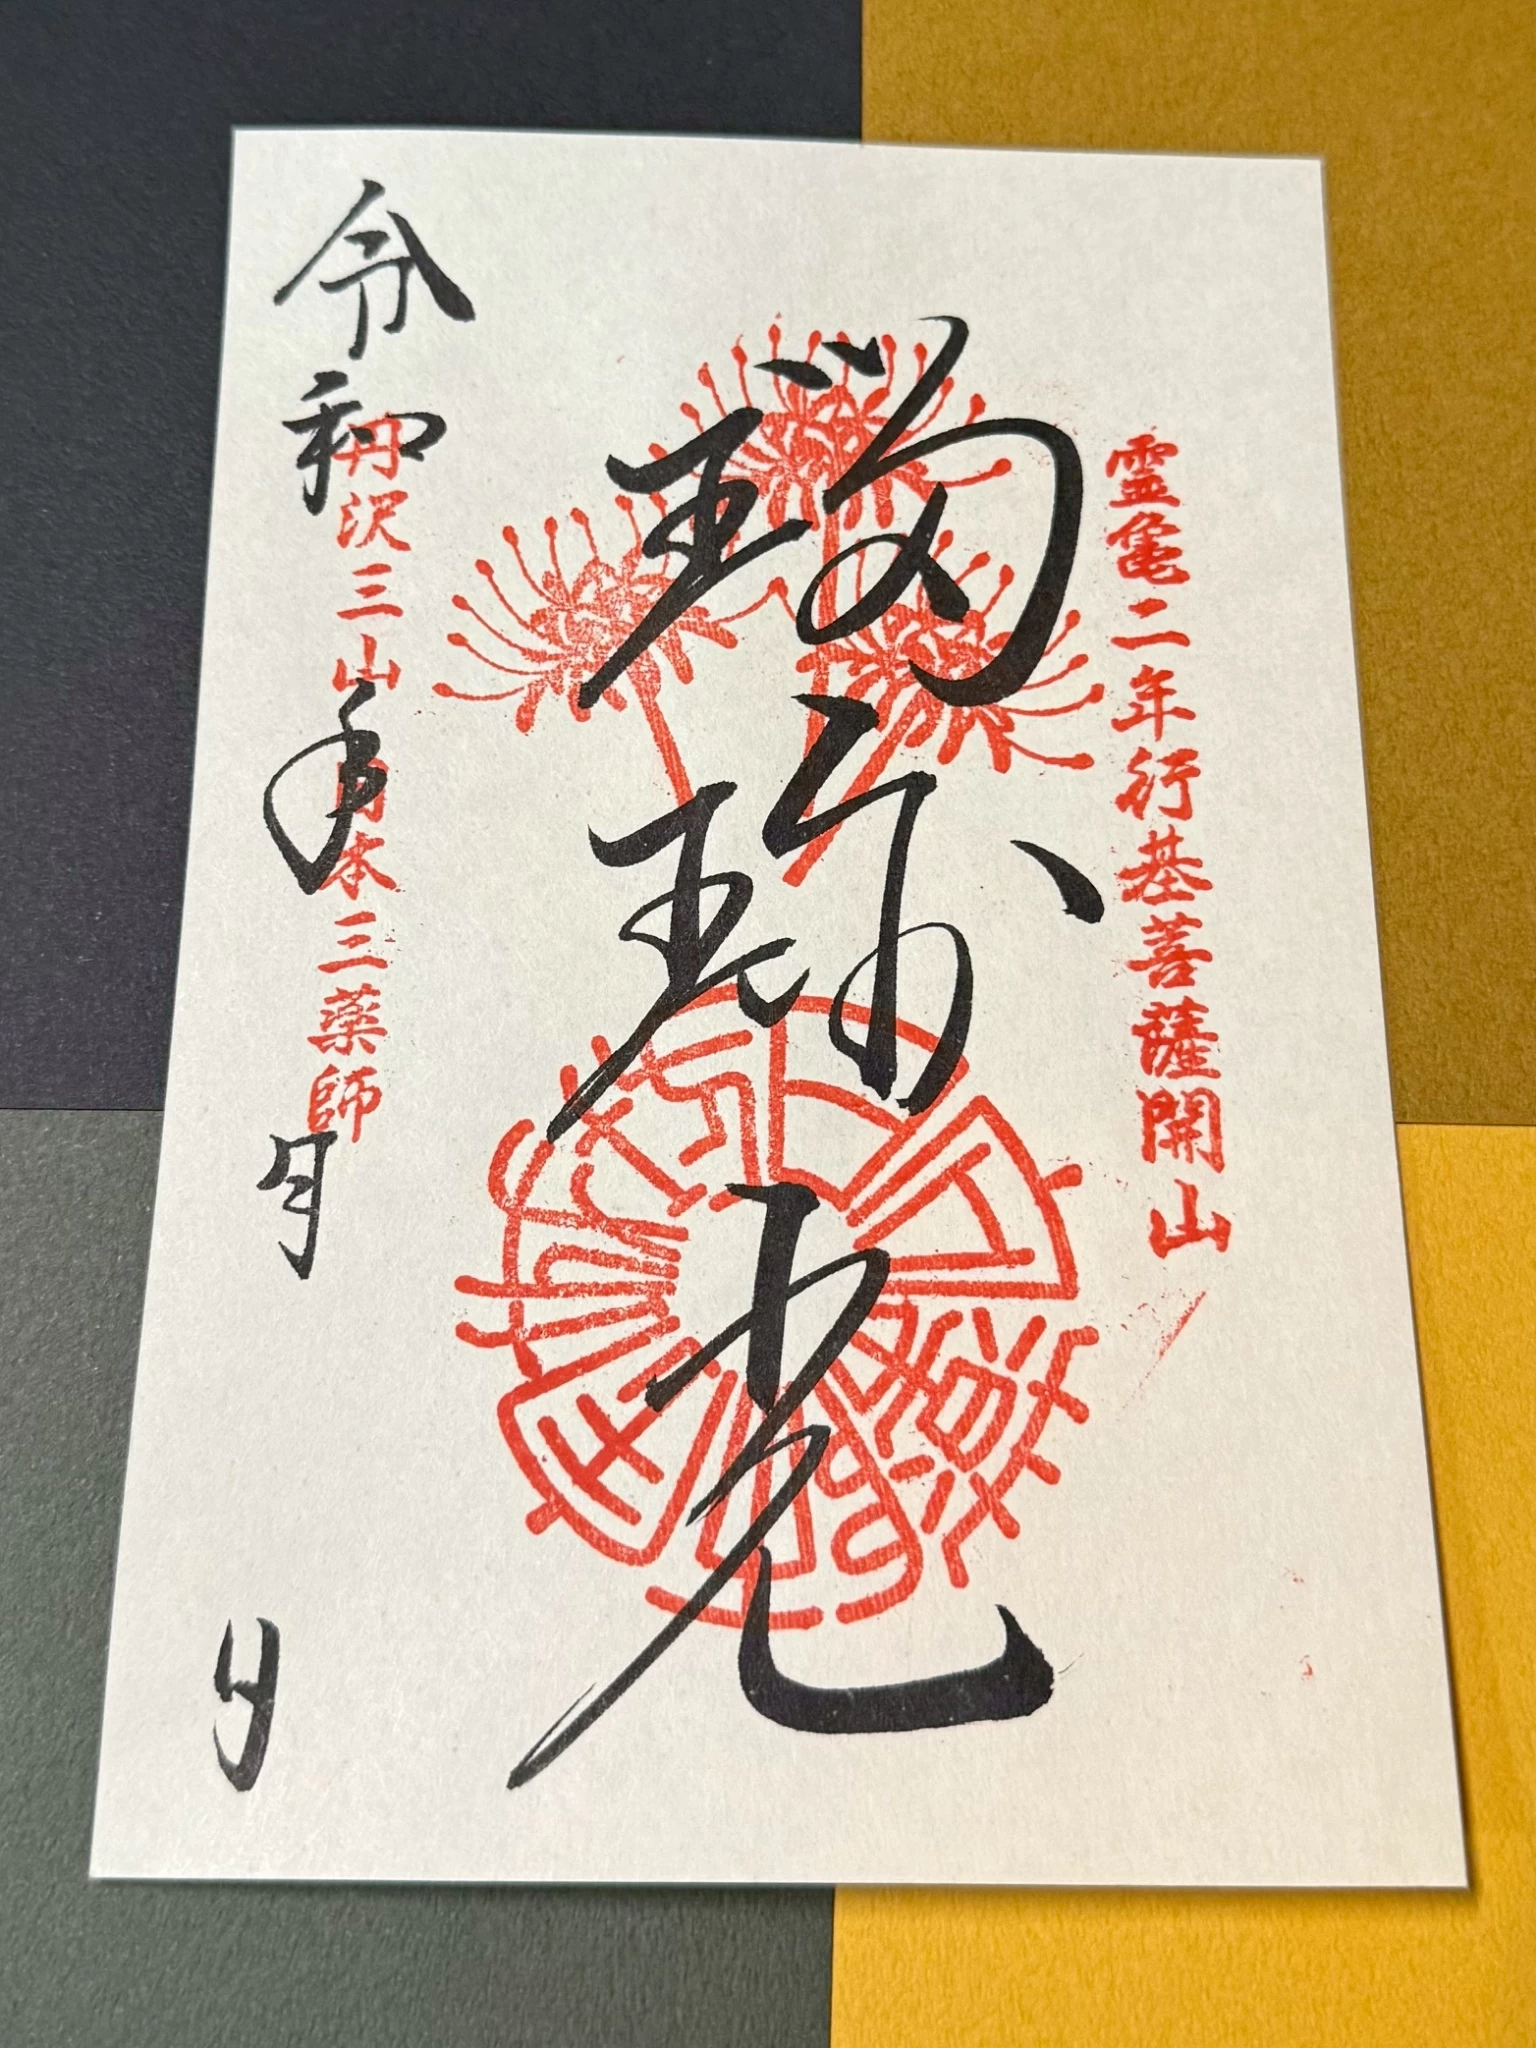 霊亀二年行基菩薩開山
瑠璃光
丹沢三山日本三薬師
令和 年 月 日